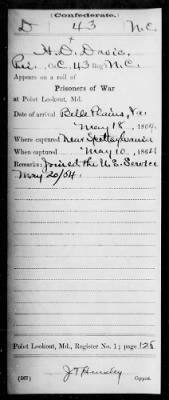 (Confederate.)
D 43 N.C.
H. D. Davis,
Pri. Co. C. 43 Reg't N.C.
Appears on a roll of
Prisoners of War
at Point Lookout, Md.
Date of arrival Belle Plains, Va.
May 18, 1864.
Where captured Near Spottsylvania
When captured May 10, 1864
Remarks: Joined the U.S. Service
May 20/64.
Point Lookout, Md., Register No. 1; page 128
(567) Copyist.